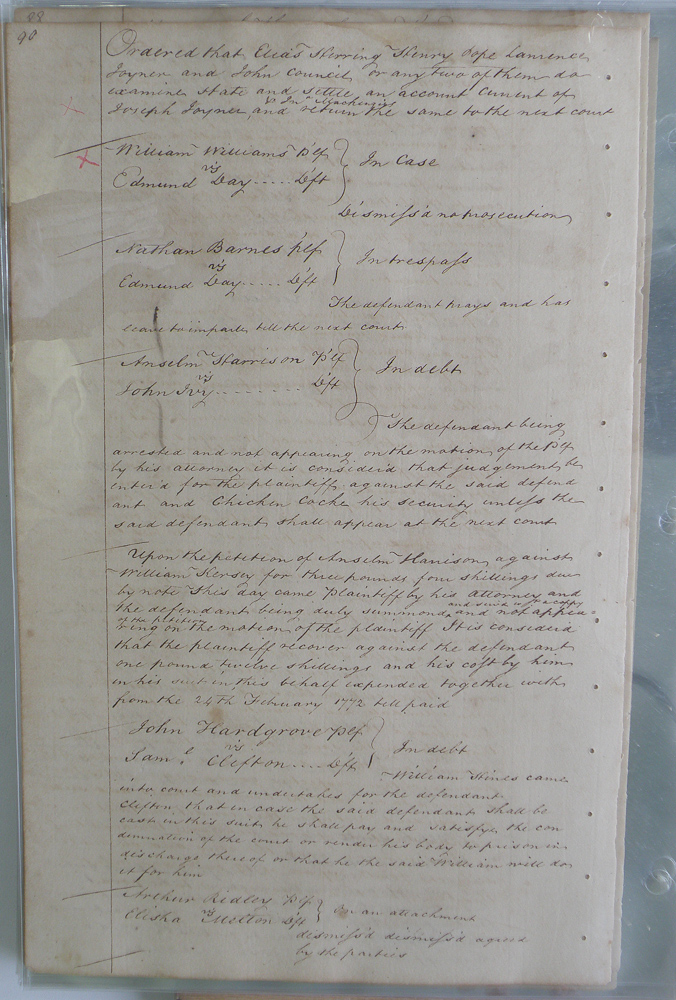 88
90
Ordered that Elias Herring Henry Pope Laurence
Joyner and John Council, or any two of them do
examine state and settle, an account Current of
& Jn°
Joseph Joyner, and return the same to the next court
William Williams Plf
vs In Case
Edmund Day..... Dft
Dismiss'd no prosecution
Nathan Barnes plf
vs In trespass
Edmund Day..... Dft
The defendant prays and has
leave to imparle till the next court
Anselm Harrison Plf
vs In debt
John Ivy......... Dft
The defendant being
arrested and not appearing on the motion of the Plf
by his attorney it is consider'd that judgement be
enter'd for the plaintiff against the said defend
ant and Chichen Cocke his security unless the
said defendant shall appear at the next court
Upon the petition of Anselm Harrison, against
William Kersey for three pounds four shillings due
by note This day came Plaintiff by his attorney and
and serv'd with a copy
the defendant being duly summond, and not appea-
of the petition
ring on the motion of the plaintiff It is consider'd
that the plaintiff recover against the defendant
one pound twelve shillings and his cost by him
in his suit in this behalf expended together with
from the 24th February 1772 till paid
John Hardgrove plf
vs In debt
Sam.l Clifton..... Dft
William Hines came
into court and undertakes for the defendant
Clifton, that in case the said defendant shall be
cast in this suit, he shall pay and satisfye the con
demnation of the court or render his body to prison in
discharge thereof or that he the said William will do
it for him
Arthur Ridley Plf
vs On an attachment
Elisha Melton Dft
dismiss'd dismiss'd agreed
by the parties